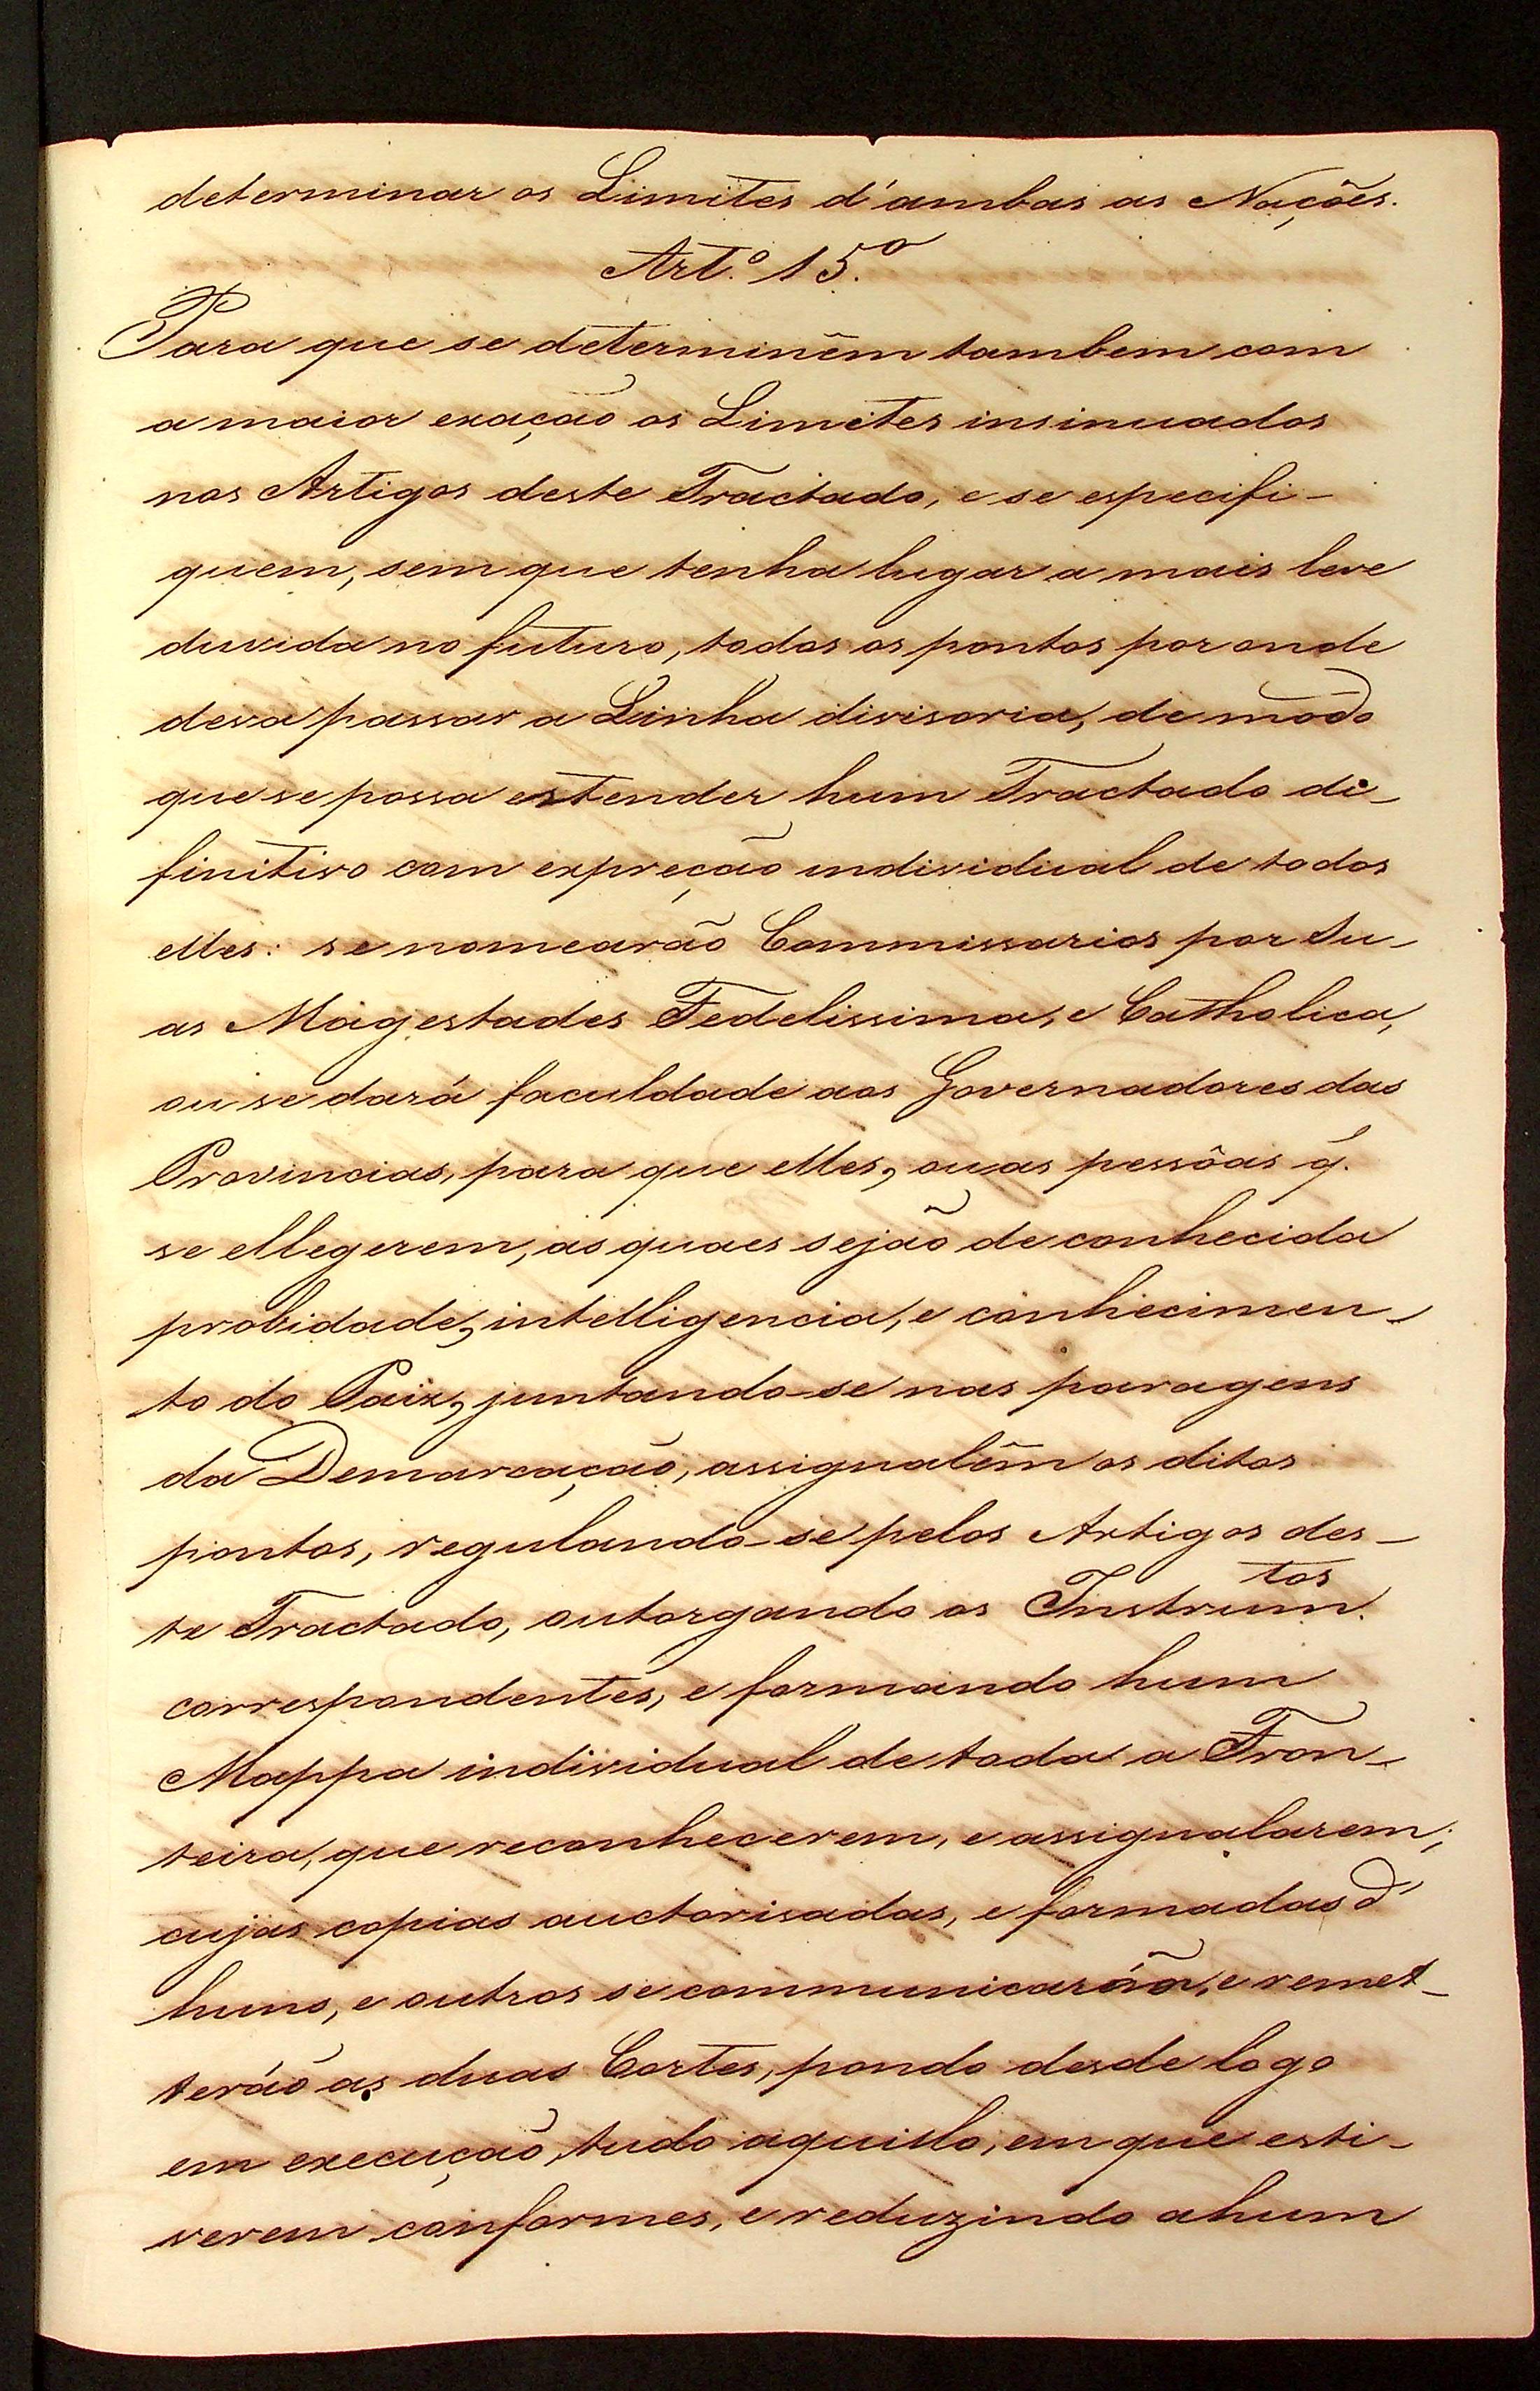 determinar os Limites d'ambas as Nações.
Art.º 15.º
Para que se determinêm tambem com
a maior exação os Limites insinuados
nos Artigos deste Tractado, e se especifi-
quem, sem que tenha lugar a mais leve
duvida no futuro, todos os pontos por onde
deva passar a Linha divisoria, de modo
que se possa estender hum Tractado di-
finitivo com expreção individual de todos
elles: se nomearão Commissarios por Su-
as Magestades Fedelissima, e Catholica,
ou se dará faculdade aos Governadores das
Provincias, para que elles, ou as pessôas q̃.
se ellegerem, as quaes sejão de conhecida
probidade, intelligencia, e conhecimen-
to do Paiz, juntando-se nas paragens
da Demarcação, assignalêm os ditos
pontos, regulando-se pelos Artigos des-
te Tractado, outorgando os Instrum.tos
correspondentes, e formando hum
Mappa individual de toda a Fron-
teira, que reconhecerem, e assignalarem;
cujas copias auctorisadas, e formadas d'
huns, e outros se communicarão, e remet-
terão as duas Cortes, pondo desde logo
em execução, tudo aquillo, em que esti-
verem conformes, e reduzindo a hum